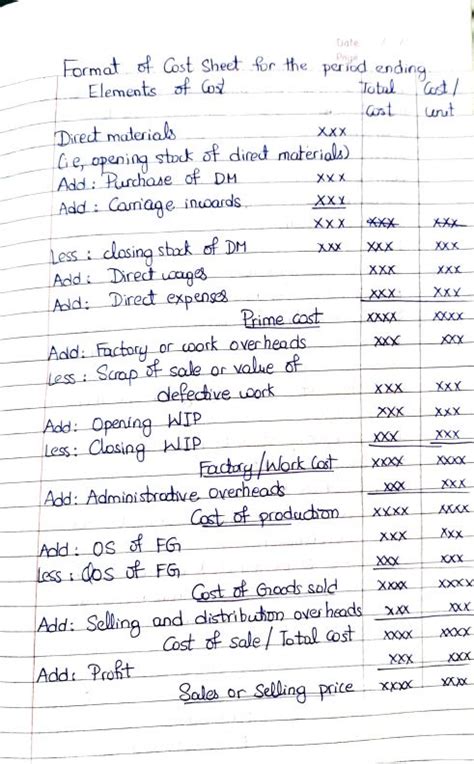 Date / /
Page
Format of Cost Sheet for the period ending
Elements of Cost Total Cost/
Cost unit
Direct materials xxx
(i.e, opening stock of direct materials)
Add: Purchase of DM xxx
Add: Carriage inwards xxx
xxx xxx xxx
Less: closing stock of DM xxx xxx xxx
Add: Direct wages xxx xxx
Add: Direct expenses xxx xxx
Prime cost xxxx xxxx
Add: Factory or work overheads xxx xxx
Less: Scrap of sale or value of
defective work xxx xxx
Add: Opening WIP xxx xxx
Less: Closing WIP xxx xxx
Factory/Work Cost xxxx xxxx
Add: Administrative overheads xxx xxx
Cost of production xxxx xxxx
Add: OS of FG xxx xxx
Less: ClOS of FG xxx xxx
Cost of Goods sold xxxx xxxx
Add: Selling and distribution overheads xxx xxx
Cost of sale/Total cost xxxx xxxx
Add: Profit xxx xxx
Sales or Selling price xxxx xxxx